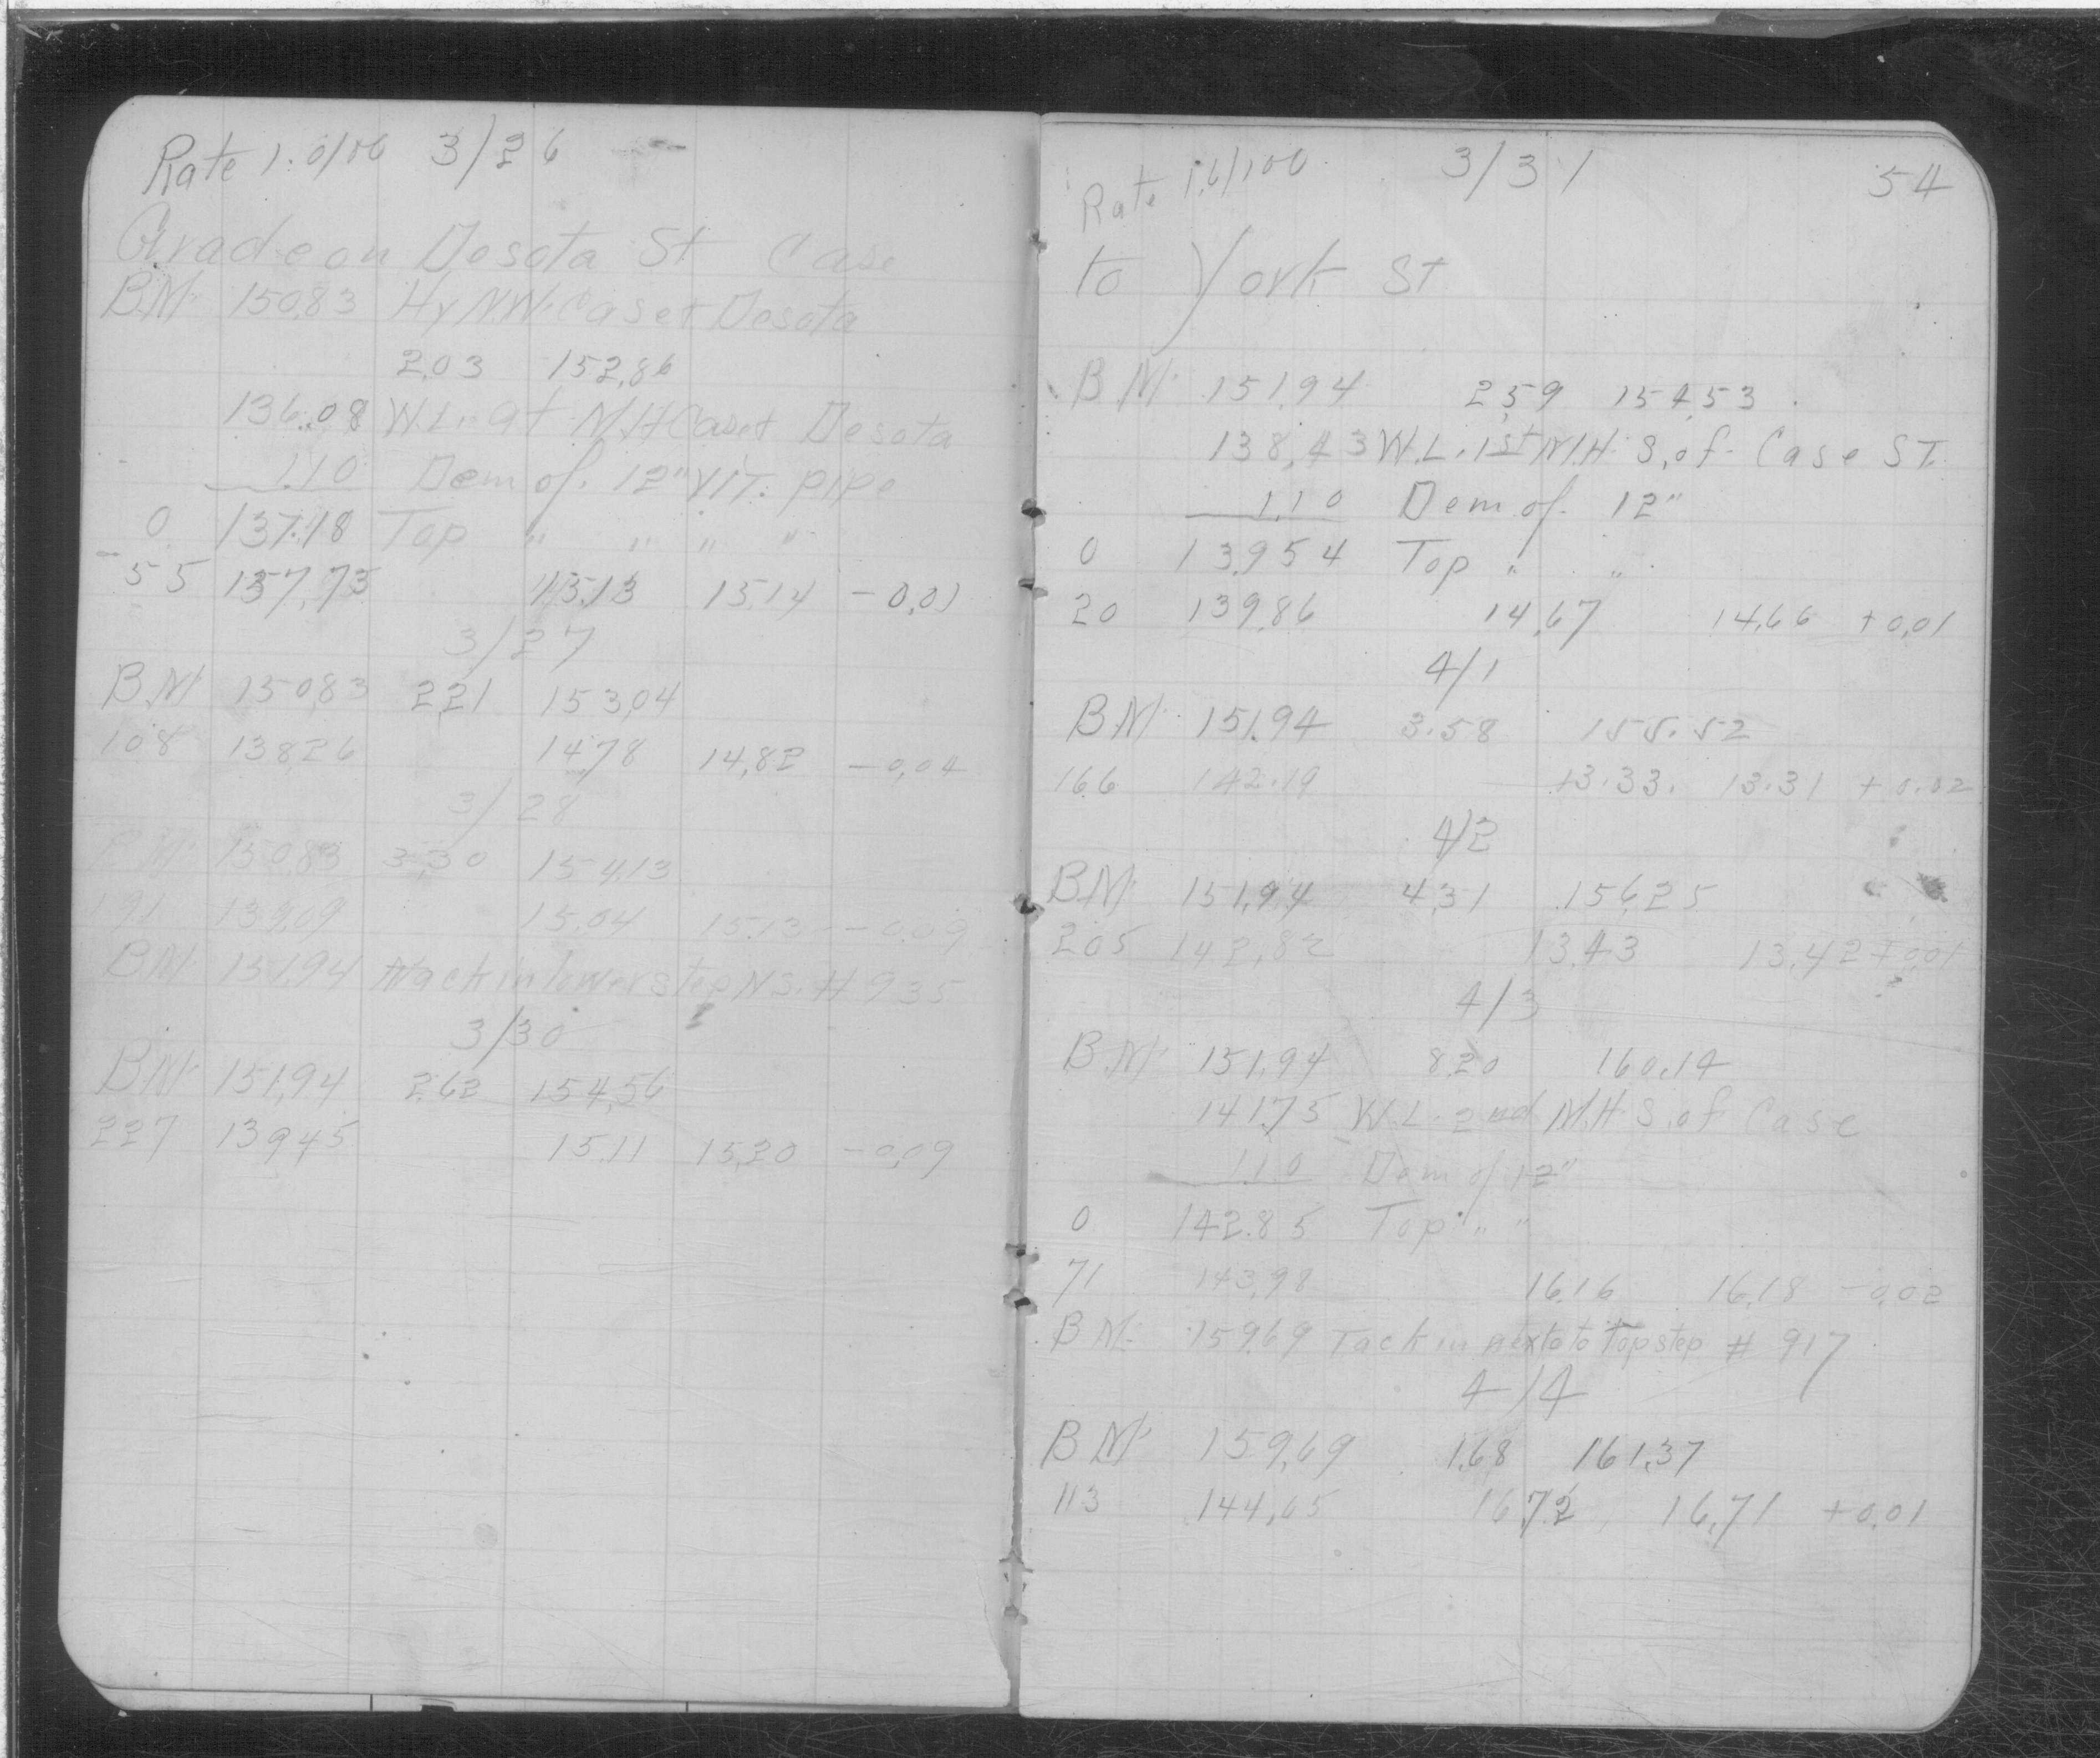 Rate 1.0/100 3/26
Grade on Desota St Case
B.M. 150.83 Hy N.W. Case & Desota
2.03 152.86
136.08 W.L. at M.H Case & Desota
1.10 Dem of. 12" VIT. pipe
0 137.18 Top " " " "
55 137.73 15.13 15.14 -0.01
3/27
B.M 150.83 2.21 153.04
108 138.26 14.78 14.82 -0.04
3/28
B.M. 150.83 3.30 154.13
191 139.09 15.04 15.13 -0.09
B.M. 151.94 Tack in lower step N.S. # 935
3/30
B.M. 151.94 2.62 154.56
227 139.45 15.11 15.20 -0.09
Rate 1.6/100 3/31 54
to York St
B M. 151.94 2.59 154.53
138.43 W.L. 1st M.H. S. of Case ST.
1.10 Dem of. 12"
0 139.54 Top " "
20 139.86 14.67 14.66 +0.01
4/1
B.M. 151.94 3.58 155.52
166 142.19 13.33. 13.31 +0.02
4/2
B.M. 151.94 4.31 156.25
205 142.82 13.43 13.42 +0.01
4/3
B M. 151.94 8.20 160.14
141.75 W.L. 2nd M.H. S. of Case
1.10 Dem of 12"
0 142.85 Top " "
71 143.98 16.16 16.18 -0.02
B M. 159.69 Tack in next to top step # 917
4/4
B M. 159.69 1.68 161.37
113 144.65 16.72 16.71 +0.01